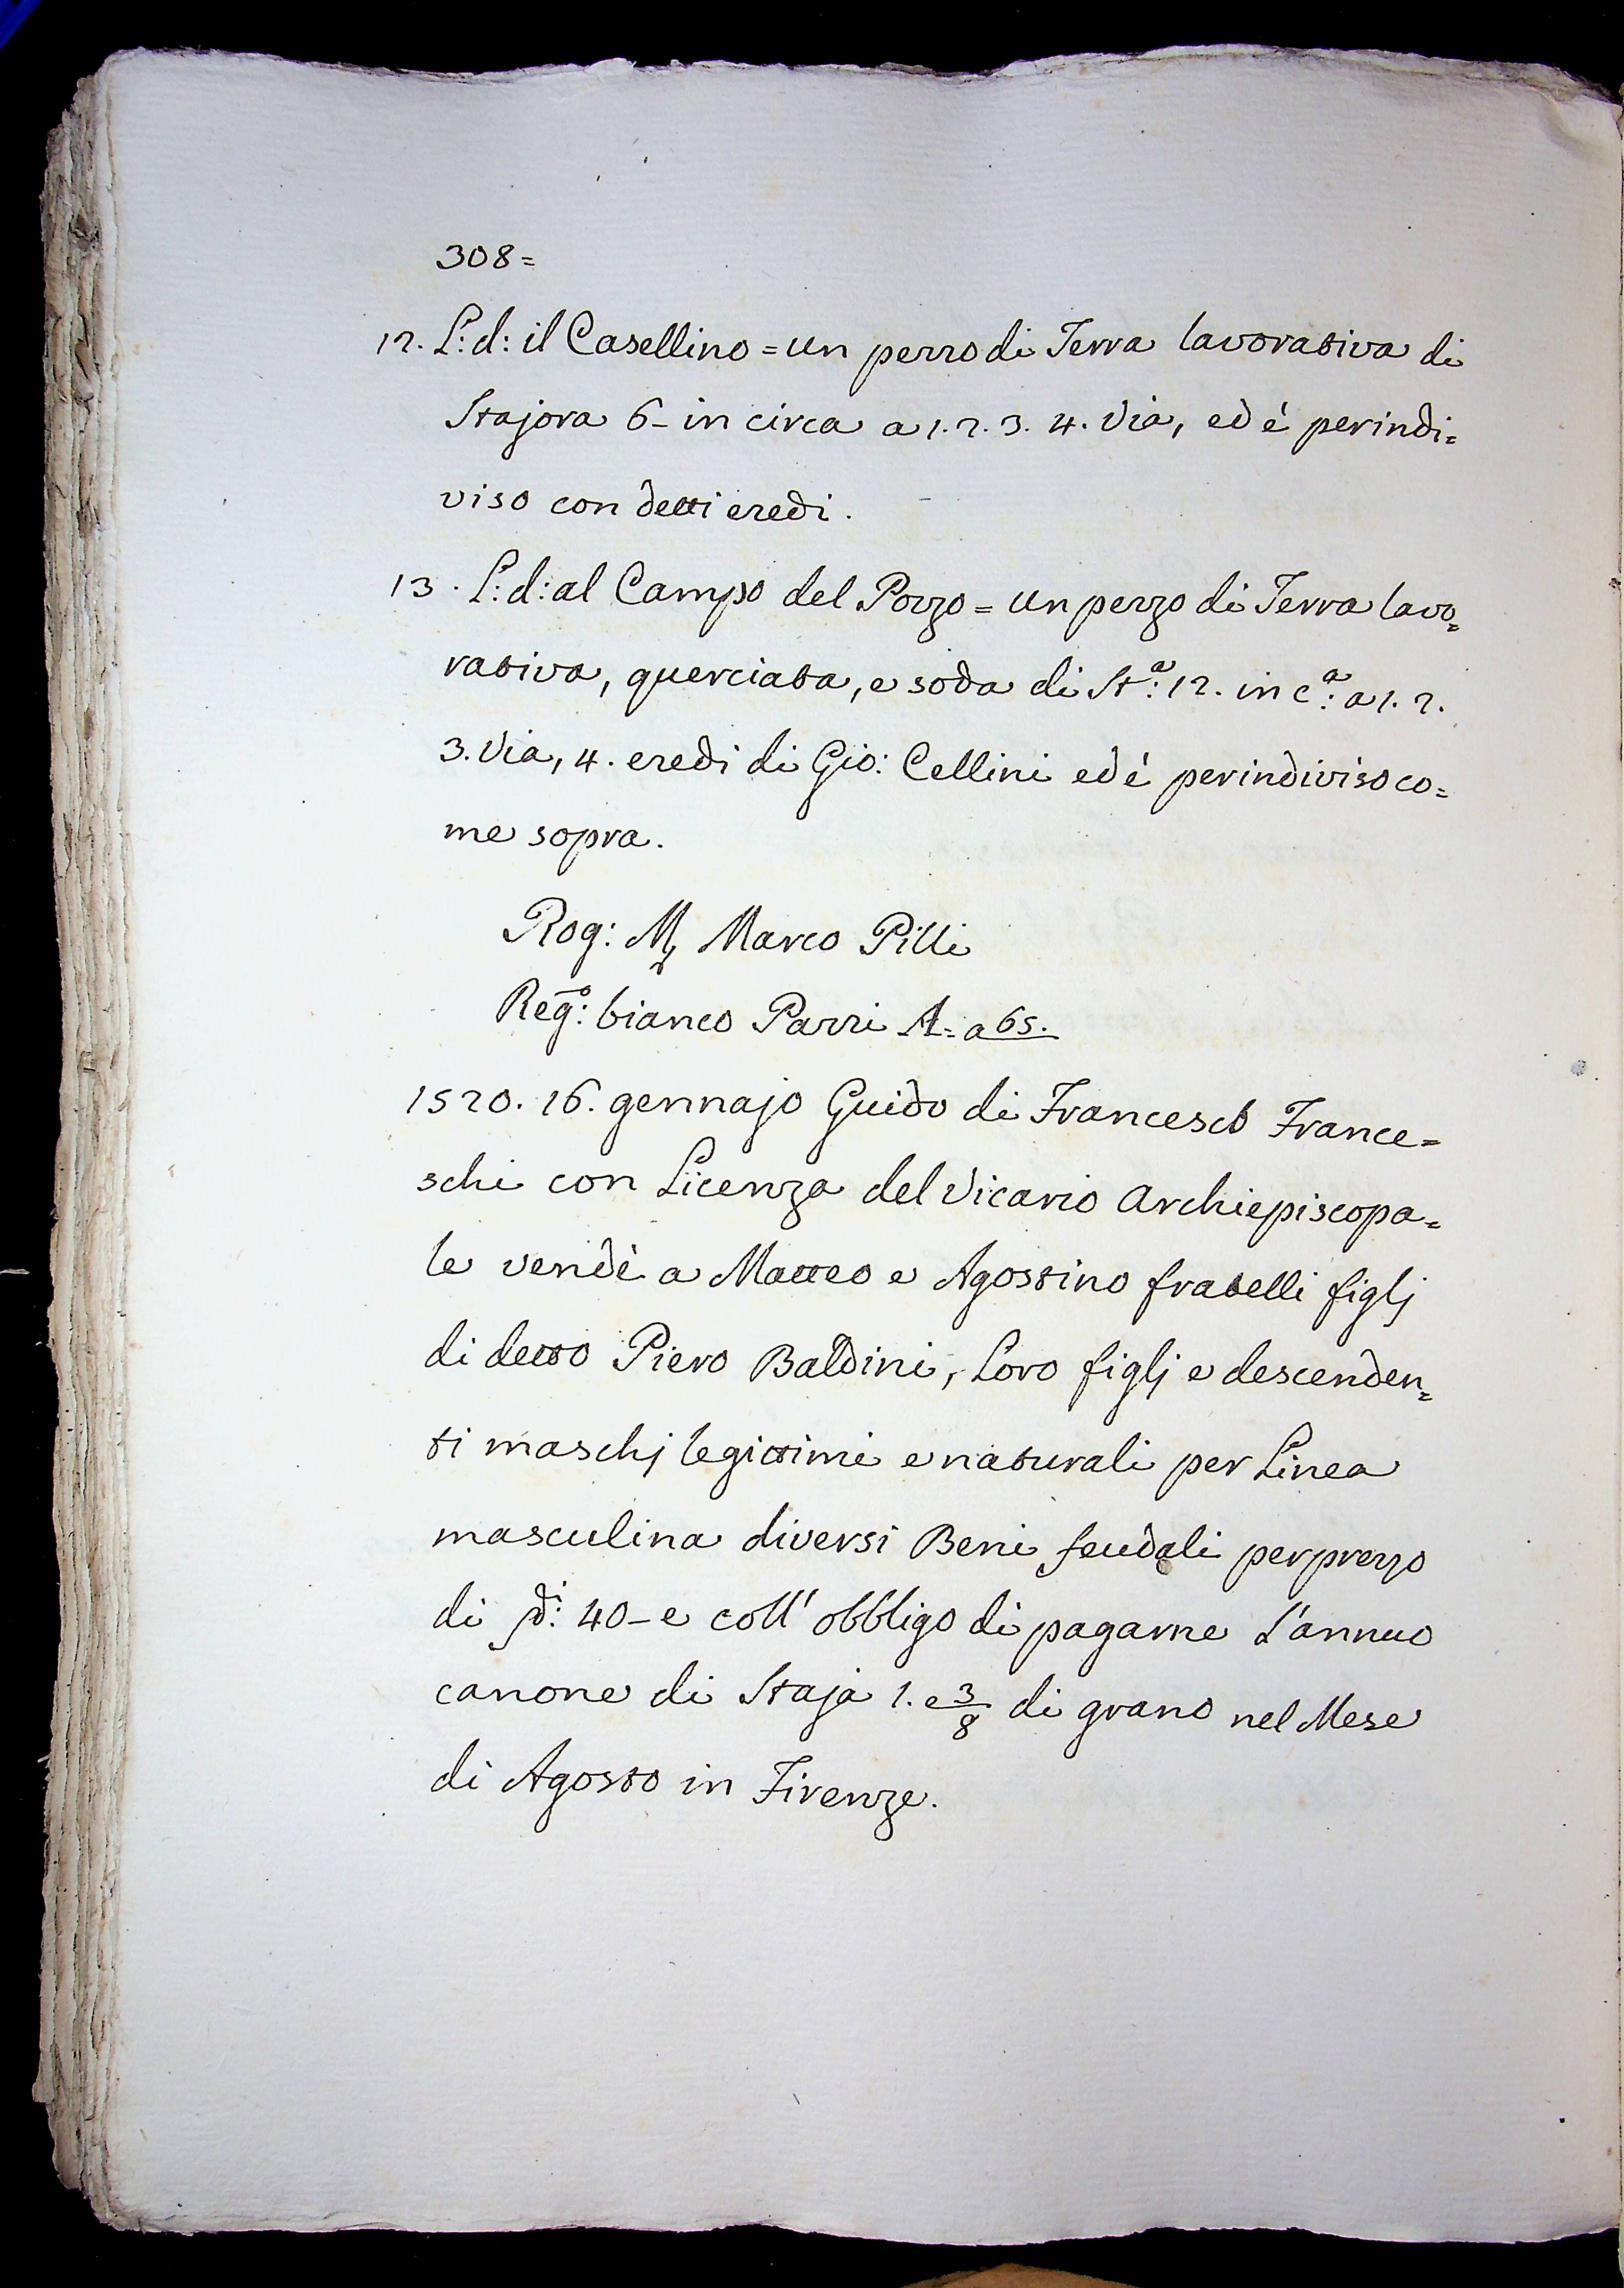 308=
12. L: d: il Casellino = un pezzo di Terra lavorativa di
Stajora 6- in circa a 1. 2. 3. 4. Via, ed é perindi=
viso con detti eredi.
13. L: d: al Campo del Pozzo = un pezzo di Terra lavo=
rativa, querciata, e soda di St:ª 12. in c:ª a 1. 2.
3. Via, 4. eredi di Gio: Cellini ed é perindiviso co=
me sopra.
Rog: Mr Marco Pilli
Reg:º bianco Pazzi A= a 65.
1520. 16. gennajo Guido di Francesco France=
schi con Licenza del Vicario Archiepiscopa=
le vendè a Matteo e Agostino fratelli figlj
di detto Piero Baldini, Loro figlj e descenden=
ti maschj legittimi e naturali per Linea
masculina diversi Beni feudali per prezzo
di 40- e coll' obbligo di pagarne L'annuo
canone di Staja 1. e 3/8 di grano nel Mese
di Agosto in Firenze.